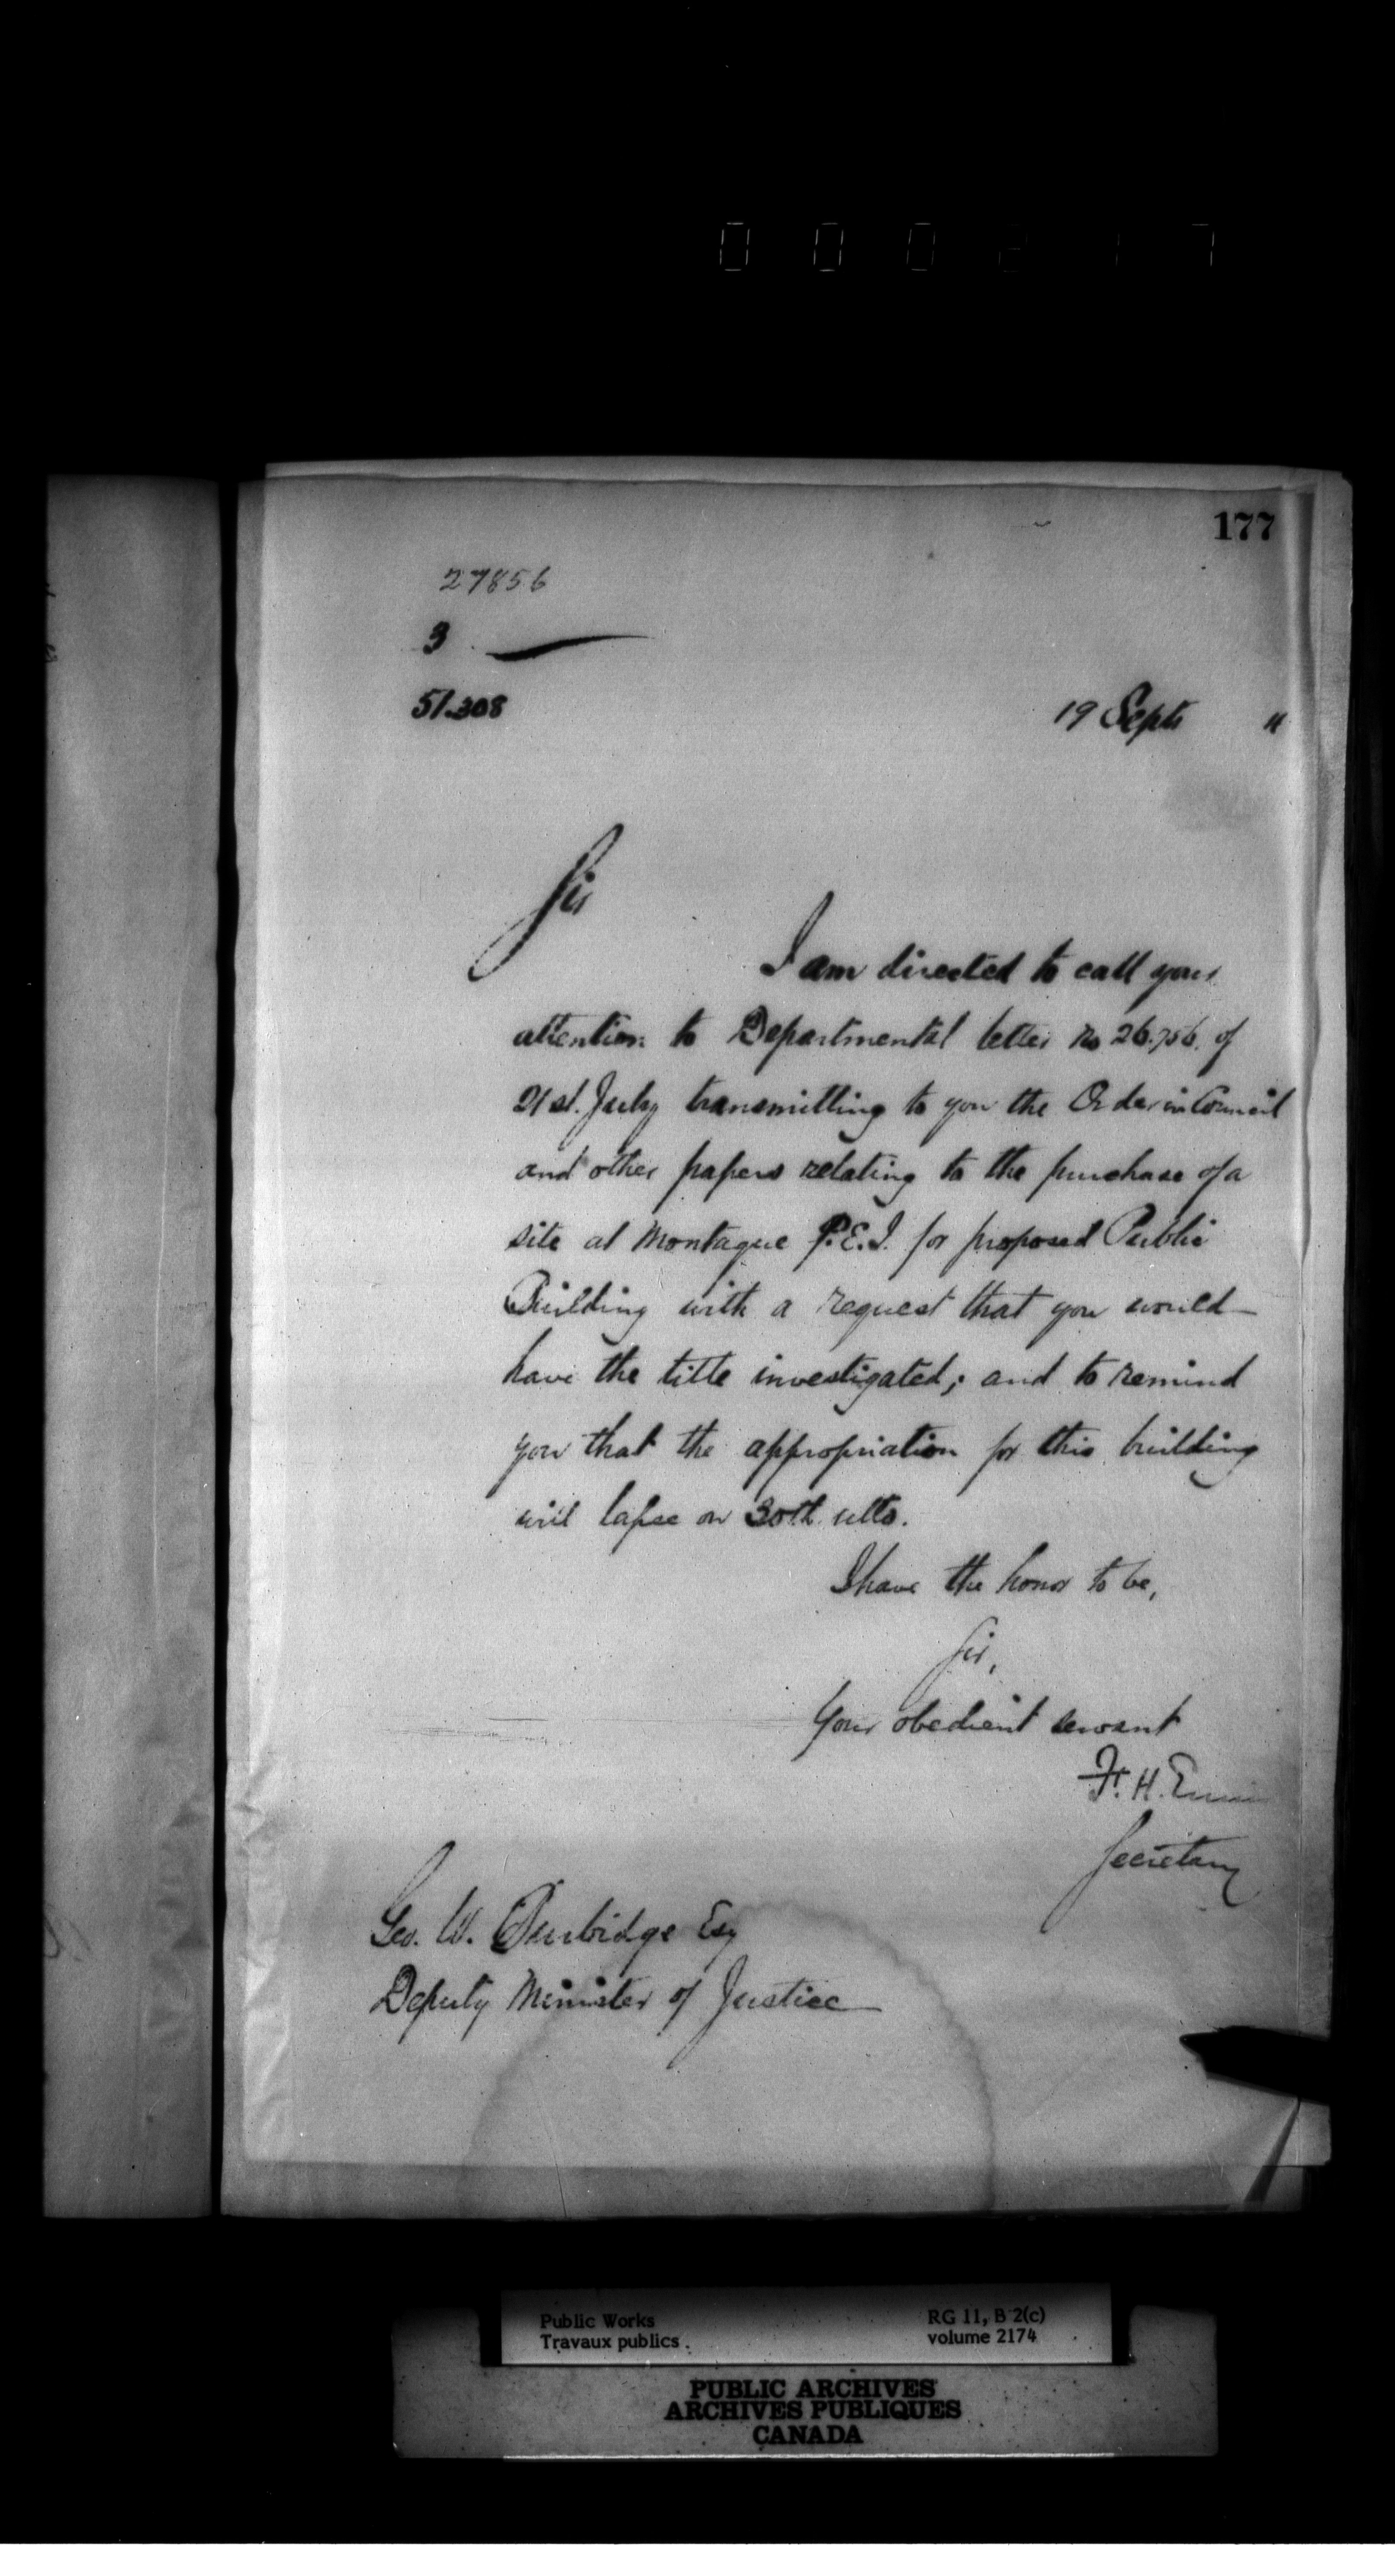 000217
177
27856
3
51.308
19 Septr "
Sir
I am directed to call your
attention to Departmental letter No 26.756. of
21st. July transmitting to you the Order in Council
and other papers relating to the purchase of a
site at Montague P.E.I. for proposed Public
Building with a request that you would
have the title investigated; and to remind
you that the appropriation for this building
will lapse on 30th ulto.
I have the honor to be,
Sir,
Your obedient servant
F. H. Ennis
Secretary
Geo. W. Burbidge Esq
Deputy Minister of Justice
Public Works
Travaux publics
RG 11, B 2(c)
volume 2174
PUBLIC ARCHIVES
ARCHIVES PUBLIQUES
CANADA